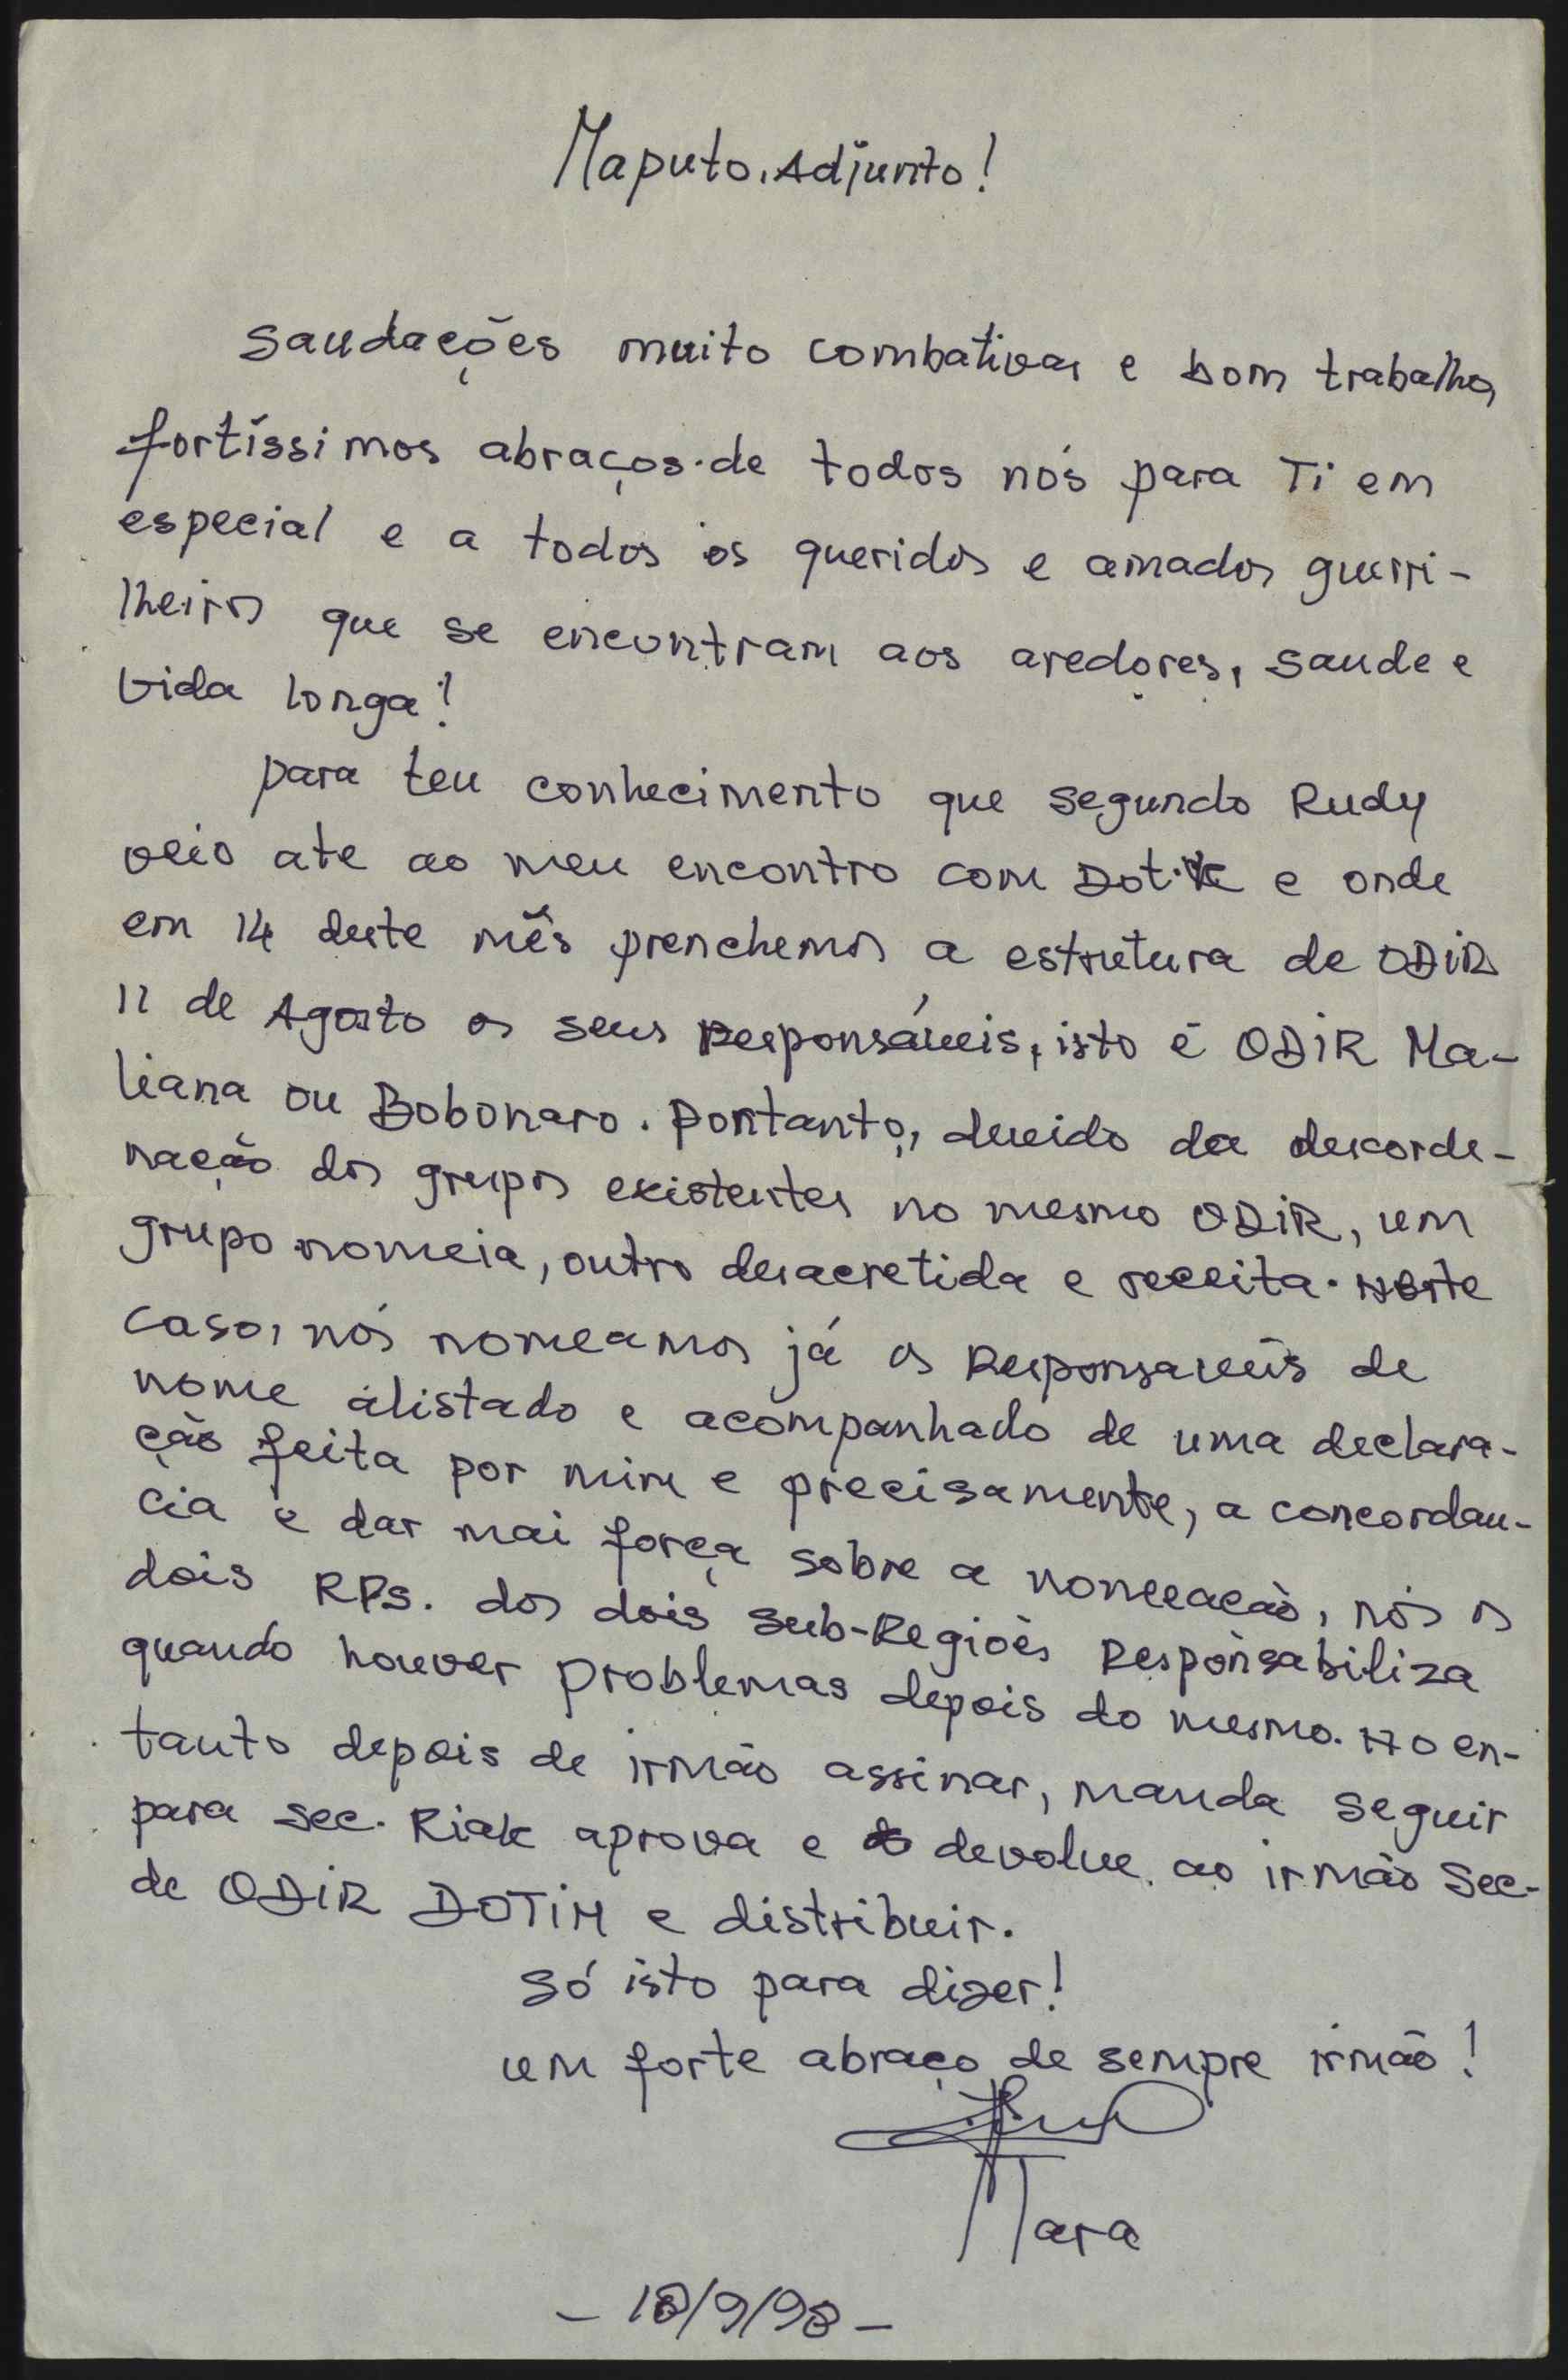 Maputo, Adjunto!
Saudações muito combativas e bom trabalho,
fortíssimos abraços de todos nós para Ti em
especial e a todos os queridos e amados guerri-
lheiros que se encontram aos aredores, saude e
vida longa!
para teu conhecimento que segundo Rudy
veio ate ao meu encontro com e onde
em 14 deste mês prenchemos a estrutura de ODIR
11 de Agosto os seus Responsáveis, isto é ODIR Ma-
liana ou Bobonaro. Portanto, devido da descorde-
nação dos grupos existentes no mesmo ODIR, um
grupo nomeia, outro desacretida e receita. Neste
caso, nós nomeamos já os Responsaveis de
nome alistado e acompanhado de uma declara-
ção feita por mim e precisamente, a concordan-
cia e dar mai força sobre a nomeeação, nós os
dois RPs. dos dois Sub-Regiões Responsabiliza
quando houver problemas depois do mesmo. No en-
tanto depois de irmão assinar, manda seguir
para Sec. Riak aprova e devolve ao irmão Sec.
de ODIR DOTIM e distribuir.
Só isto para dizer!
um forte abraço de sempre irmão!
Mara
- 18/9/98 -